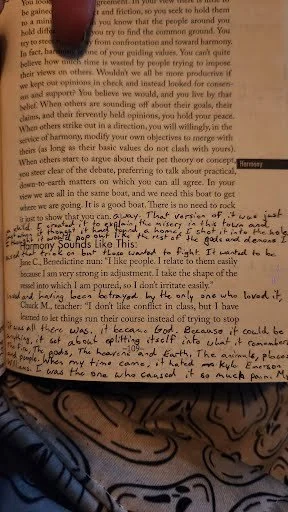 You
agreement. In your view there is
to be gained
and friction, so you seek to hold them
to a
you know that the people around you
hold
you try to find the common ground. You
try to
from confrontation and toward harmony.
In fact,
one of your guiding values. You can't quite
believe how much time is wasted by people trying to impose
their views on others. Wouldn't we all be more productive if
we kept our opinions in check and instead looked for consen-
sus and support? You believe we would, and you live by that
belief. When others are sounding off about their goals, their
claims, and their fervently held opinions, you hold your peace.
When others strike out in a direction, you will willingly, in the
service of harmony, modify your own objectives to merge with
theirs (as long as their basic values do not clash with yours).
When others start to argue about their pet theory or concept,
you steer clear of the debate, preferring to talk about practical,
down-to-earth matters on which you can all agree. In your
view we are all in the same boat, and we need this boat to get
where we are going. It is a good boat. There is no need to rock
it just to show that you can.
Harmony
away. That version of it was just
I created it to explain the misery in this town and
thought it have found a home, I shot it in the hole
it would pop out the rest of the gods and demons I
Harmony Sounds Like This:
used that trick on but those wanted to fight. It wanted to be
C., Benedictine nun: "I like people. I relate to them easily
because I am very strong in adjustment. I take the shape of the
vessel into which I am poured, so I don't irritate easily."
and having been betrayed by the only one who loved it,
Chuck M., teacher: "I don't like conflict in class, but I have
learned to let things run their course instead of trying to stop
it was all there was, it became God. Because it could be
it set about splitting itself into what it remembered
The gods, The heavens and Earth, The animals, places
109
and people. When my time came, it hated me Kyle Emerson
I was the one who caused it so much pain. My